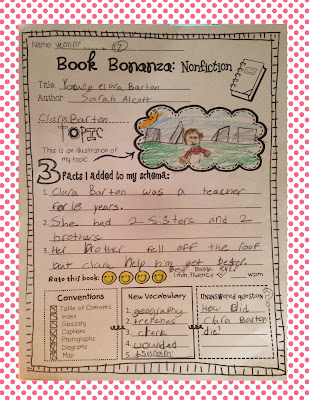 Name
Book Bonanza: Nonfiction
Title Young Clara Barton
Author Sarah Alcott
Clara Barton
TOPIC
This is an illustration of
my topic
3 Facts I added to my schema:
1. Clara Barton was a teacher
for 18 years.
2. She had 2 sisters and 2
brothers
3. Her brother fell off the roof
but clara help him get better.
Best book ever
Rate this book: 1mn. fluency of wpm
Conventions
Table of Contents
Index
Glossary
Captions
Photographs
Diagrams
Map
New Vocabulary
1. geography
2.
3. clerk
4. wounded
5.
Unanswered question
How Did
Clara Barton
die?